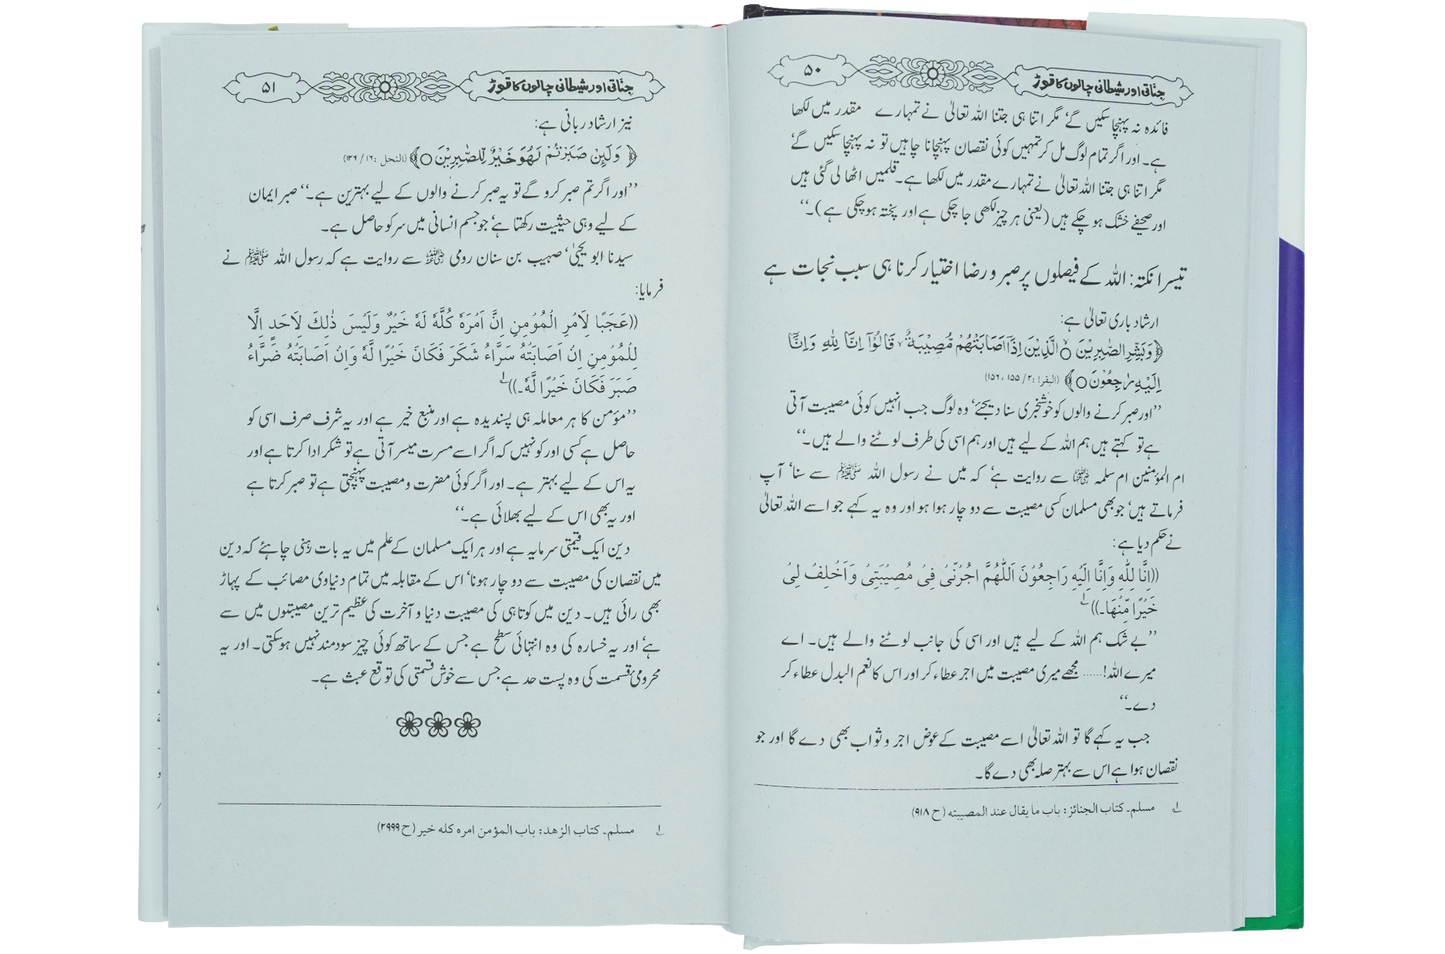 ۵۰
جناتی اور شیطانی چالوں کا توڑ
فائدہ نہ پہنچا سکیں گے‘ مگر اتنا ہی جتنا اللہ تعالیٰ نے تمہارے مقدر میں لکھا
ہے۔ اور اگر تمام لوگ مل کر تمہیں کوئی نقصان پہنچانا چاہیں تو نہ پہنچا سکیں گے‘
مگر اتنا ہی جتنا اللہ تعالیٰ نے تمہارے مقدر میں لکھا ہے۔ قلمیں اٹھا لی گئی ہیں
اور صحیفے خشک ہو چکے ہیں (یعنی ہر چیز لکھی جا چکی ہے اور پختہ ہو چکی ہے)۔‘‘
تیسرا نکتہ: اللہ کے فیصلوں پر صبر و رضا اختیار کرنا ہی سبب نجات ہے
ارشاد باری تعالیٰ ہے:
﴿وَبَشِّرِ الصّٰبِرِیْنَ ○ الَّذِیْنَ اِذَاۤ اَصَابَتْهُمْ مُّصِیْبَةٌ ۙ قَالُوْۤا اِنَّا لِلّٰهِ وَاِنَّاۤ
اِلَیْهِ رٰجِعُوْنَ○﴾ (البقرا :۲/ ۱۵۵، ۱۵۶)
’’اور صبر کرنے والوں کو خوشخبری سنا دیجئے‘ وہ لوگ جب انہیں کوئی مصیبت آتی
ہے تو کہتے ہیں ہم اللہ کے لیے ہیں اور ہم اسی کی طرف لوٹنے والے ہیں۔‘‘
ام المؤمنین ام سلمہ رضی اللہ عنہا سے روایت ہے‘ کہ میں نے رسول اللہ ﷺ سے سنا‘ آپ
فرماتے ہیں‘ جو بھی مسلمان کسی مصیبت سے دو چار ہوا ہو اور وہ یہ کہے جو اسے اللہ تعالیٰ
نے حکم دیا ہے:
((اِنَّا لِلّٰهِ وَاِنَّا اِلَیْهِ رَاجِعُوْنَ اَللّٰهُمَّ اجُرْنِیْ فِیْ مُصِیْبَتِیْ وَاَخْلِفْ لِیْ
خَیْرًا مِّنْهَا۔)) ۱
’’بے شک ہم اللہ کے لیے ہیں اور اسی کی جانب لوٹنے والے ہیں۔ اے
میرے اللہ!...... مجھے میری مصیبت میں اجر عطاء کر اور اس کا نعم البدل عطاء کر
دے۔‘‘
جب یہ کہے گا تو اللہ تعالیٰ اسے مصیبت کے عوض اجر و ثواب بھی دے گا اور جو
نقصان ہوا ہے اس سے بہتر صلہ بھی دے گا۔
۱ مسلم۔ کتاب الجنائز: باب ما یقال عند المصیبته (ح ۹۱۸)
جناتی اور شیطانی چالوں کا توڑ
۵۱
نیز ارشاد ربانی ہے:
﴿وَلَئِنْ صَبَرْتُمْ لَهُوَ خَیْرٌ لِّلصّٰبِرِیْنَ○﴾ (النحل :۱۶/ ۱۲۶)
’’اور اگر تم صبر کرو گے تو یہ صبر کرنے والوں کے لیے بہترین ہے۔‘‘ صبر ایمان
کے لیے وہی حیثیت رکھتا ہے‘ جو جسم انسانی میں سر کو حاصل ہے۔
سیدنا ابو یحییٰ‘ صہیب بن سنان رومی رضی اللہ عنہ سے روایت ہے کہ رسول اللہ ﷺ نے
فرمایا:
((عَجَبًا لِاَمْرِ الْمُؤْمِنِ اِنَّ اَمْرَهٗ كُلَّهٗ لَهٗ خَیْرٌ وَلَیْسَ ذٰلِكَ لِاَحَدٍ اِلَّا
لِلْمُؤْمِنِ اِنْ اَصَابَتْهُ سَرَّاءُ شَكَرَ فَكَانَ خَیْرًا لَّهٗ وَاِنْ اَصَابَتْهُ ضَرَّاءُ
صَبَرَ فَكَانَ خَیْرًا لَّهٗ۔)) ۱
’’مؤمن کا ہر معاملہ ہی پسندیدہ ہے اور منبع خیر ہے اور یہ شرف صرف اسی کو
حاصل ہے کسی اور کو نہیں کہ اگر اسے مسرت میسر آتی ہے تو شکر ادا کرتا ہے اور
یہ اس کے لیے بہتر ہے۔ اور اگر کوئی مضرت و مصیبت پہنچتی ہے تو صبر کرتا ہے
اور یہ بھی اس کے لیے بھلائی ہے۔‘‘
دین ایک قیمتی سرمایہ ہے اور ہر ایک مسلمان کے علم میں یہ بات رہنی چاہئے کہ دین
میں نقصان کی مصیبت سے دو چار ہونا‘ اس کے مقابلہ میں تمام دنیاوی مصائب کے پہاڑ
بھی رائی ہیں۔ دین میں کوتاہی کی مصیبت دنیا و آخرت کی عظیم ترین مصیبتوں میں سے
ہے‘ اور یہ خسارہ کی وہ انتہائی سطح ہے جس کے ساتھ کوئی چیز سود مند نہیں ہو سکتی۔ اور یہ
محرومیٔ قسمت کی وہ پست حد ہے جس سے خوش قسمتی کی توقع عبث ہے۔
۱ مسلم۔ کتاب الزھد: باب المؤمن امره کله خیر (ح ۲۹۹۹)